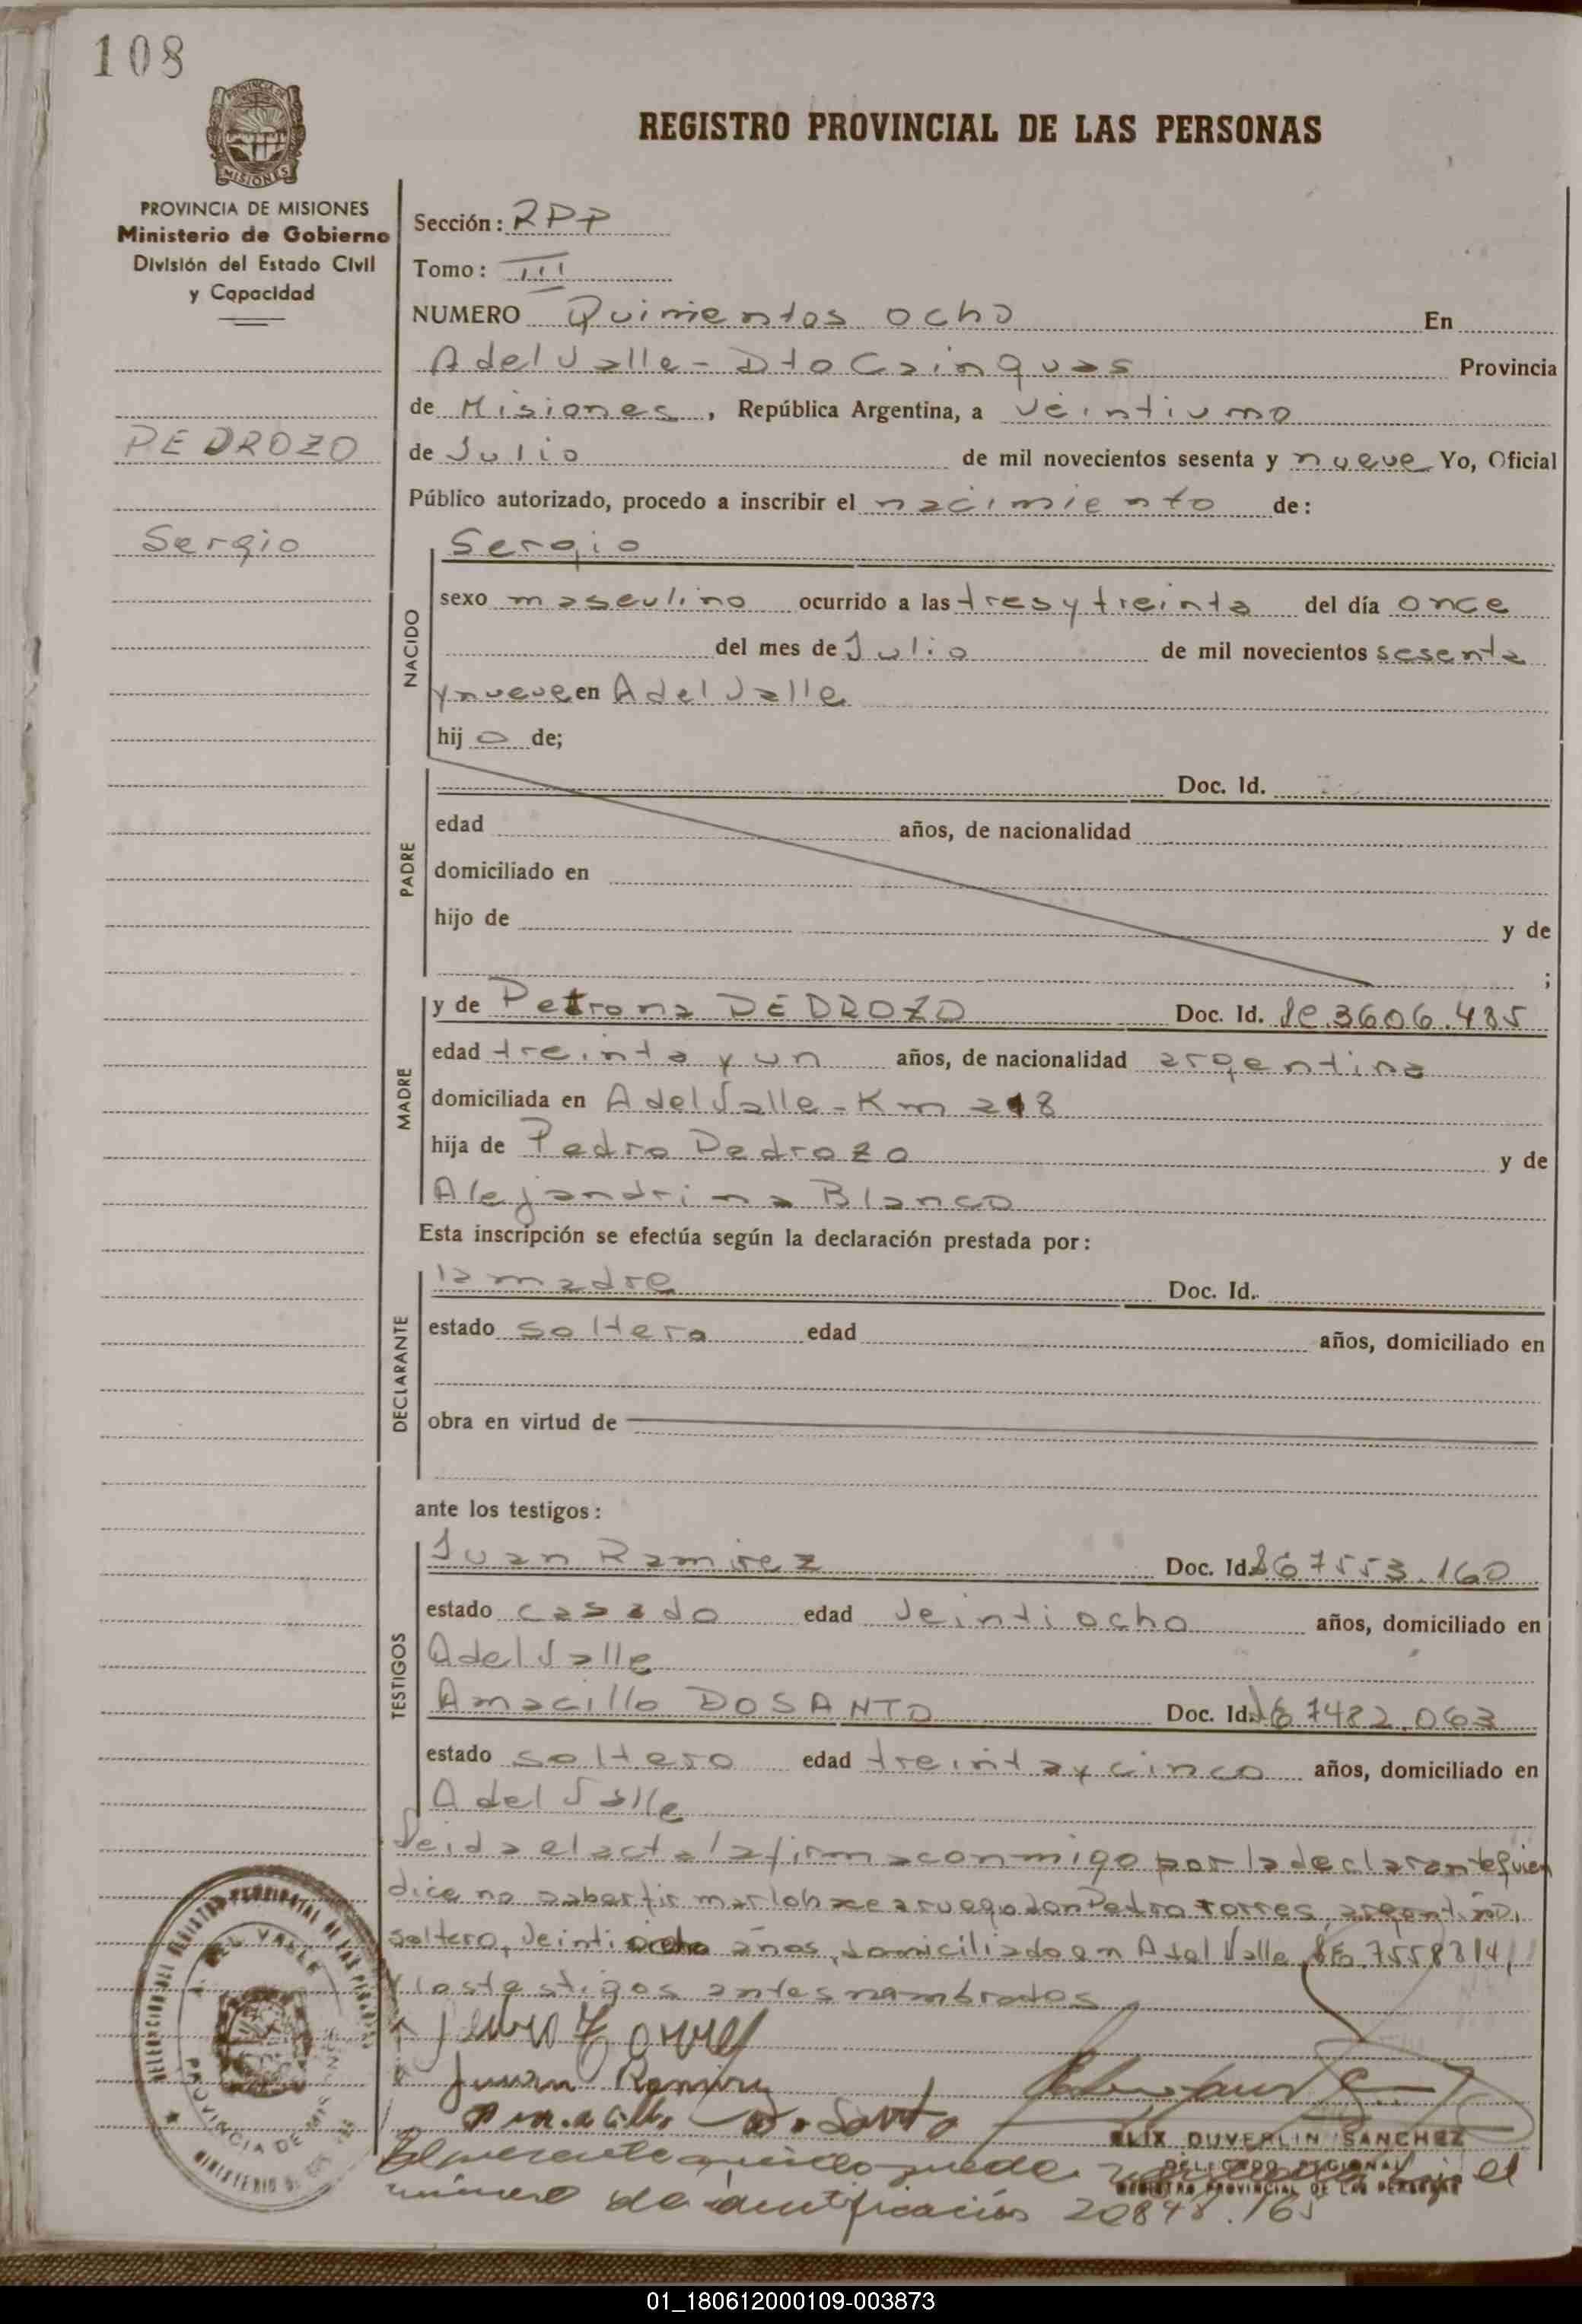 108
REGISTRO PROVINCIAL DE LAS PERSONAS
MISIONES
PROVINCIA DE MISIONES
Ministerio de Gobierno
División del Estado Civil
y Capacidad
PEDROZO
Sergio
Sección: RPP
Tomo: III
NUMERO Quinientos ocho En
A del Valle - Dto Cainguas Provincia
de Misiones, República Argentina, a veintiuno
de Julio de mil novecientos sesenta y nueve Yo, Oficial
Público autorizado, procedo a inscribir el nacimiento de:
Sergio
NACIDO
sexo masculino ocurrido a las tres y treinta del día once
del mes de Julio de mil novecientos sesenta
y nueve en A del Valle
hij o de;
PADRE
Doc. Id.
edad años, de nacionalidad
domiciliado en
hijo de y de
;
MADRE
y de Petrona PEDROZO Doc. Id. 3606.485
edad treinta y un años, de nacionalidad argentina
domiciliada en A del Valle - Km 218
hija de Pedro Pedrozo y de
Alejandrina Blanco
Esta inscripción se efectúa según la declaración prestada por:
DECLARANTE
la madre Doc. Id.
estado soltera edad años, domiciliado en
obra en virtud de
ante los testigos:
TESTIGOS
Juan Ramirez Doc. Id. 7553.160
estado casado edad veintiocho años, domiciliado en
A del Valle
Amacillo DOSANTO Doc. Id. 7482.063
estado soltero edad treinta y cinco años, domiciliado en
A del Valle
Leida el acta la firma conmigo por la declarante quien
dice no saber firmar lo hace a ruego don Pedro torres, argentino,
soltero, veinti años, domiciliado en A del Valle, 7558314
y los testigos antes nombrados
Pedro Torres
Juan Ramirez
Amacillo Do Santo
ELIX DUVERLIN SANCHEZ
DELEGADO REGIONAL
REGISTRO PROVINCIAL DE LAS PERSONAS
DELEGACION DEL REGISTRO PROVINCIAL DE LAS PERSONAS
A. DEL VALLE
PROVINCIA DE MISIONES
MINISTERIO DE
El presente quedo el
número de identificación 20848.165
01_180612000109-003873